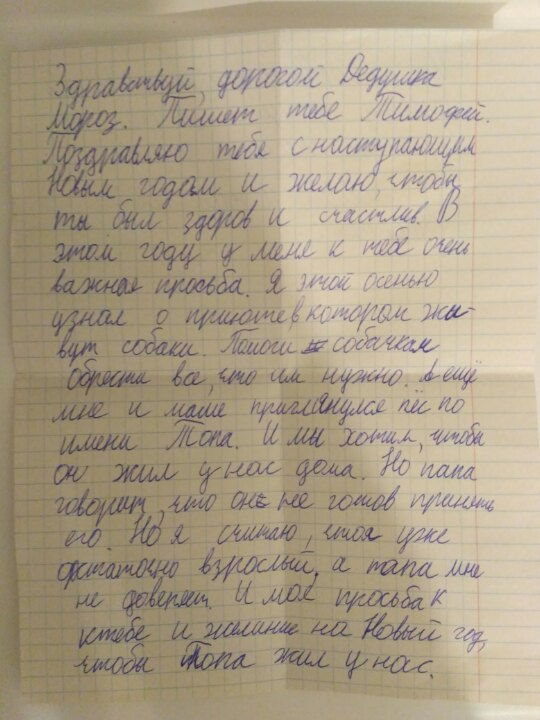 Здравствуй, дорогой Дедушка
Мороз. Пишет тебе Тимофей.
Поздравляю тебя с наступающим
Новым годом и желаю, чтобы
ты был здоров и счастлив. В
этом году у меня к тебе очень
важная просьба. Я этой осенью
узнал о приюте в котором жи-
вут собаки. Помоги собачкам
обрести все, что им нужно. А ещё
мне и маме приглянулся пёс по
имени Топа. И мы хотим, чтобы
он жил у нас дома. Но папа
говорит, что он не готов принять
его. Но я считаю, что я уже
достаточно взрослый, а папа мне
не доверяет. И моя просьба к
к тебе и желание на Новый год,
чтобы Топа жил у нас.